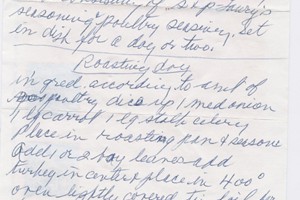 seasoning, poultry seasoning, set
in dish for a day or two.
Roasting day
in gred. according to amt of
poultry dice up 1 med onion
1 lg carrot 1 lg stalk celery
place in roasting pan & seasone
add 1 or 2 bay leaves add
turkey in center place in 400°
oven lightly covered tin foil for